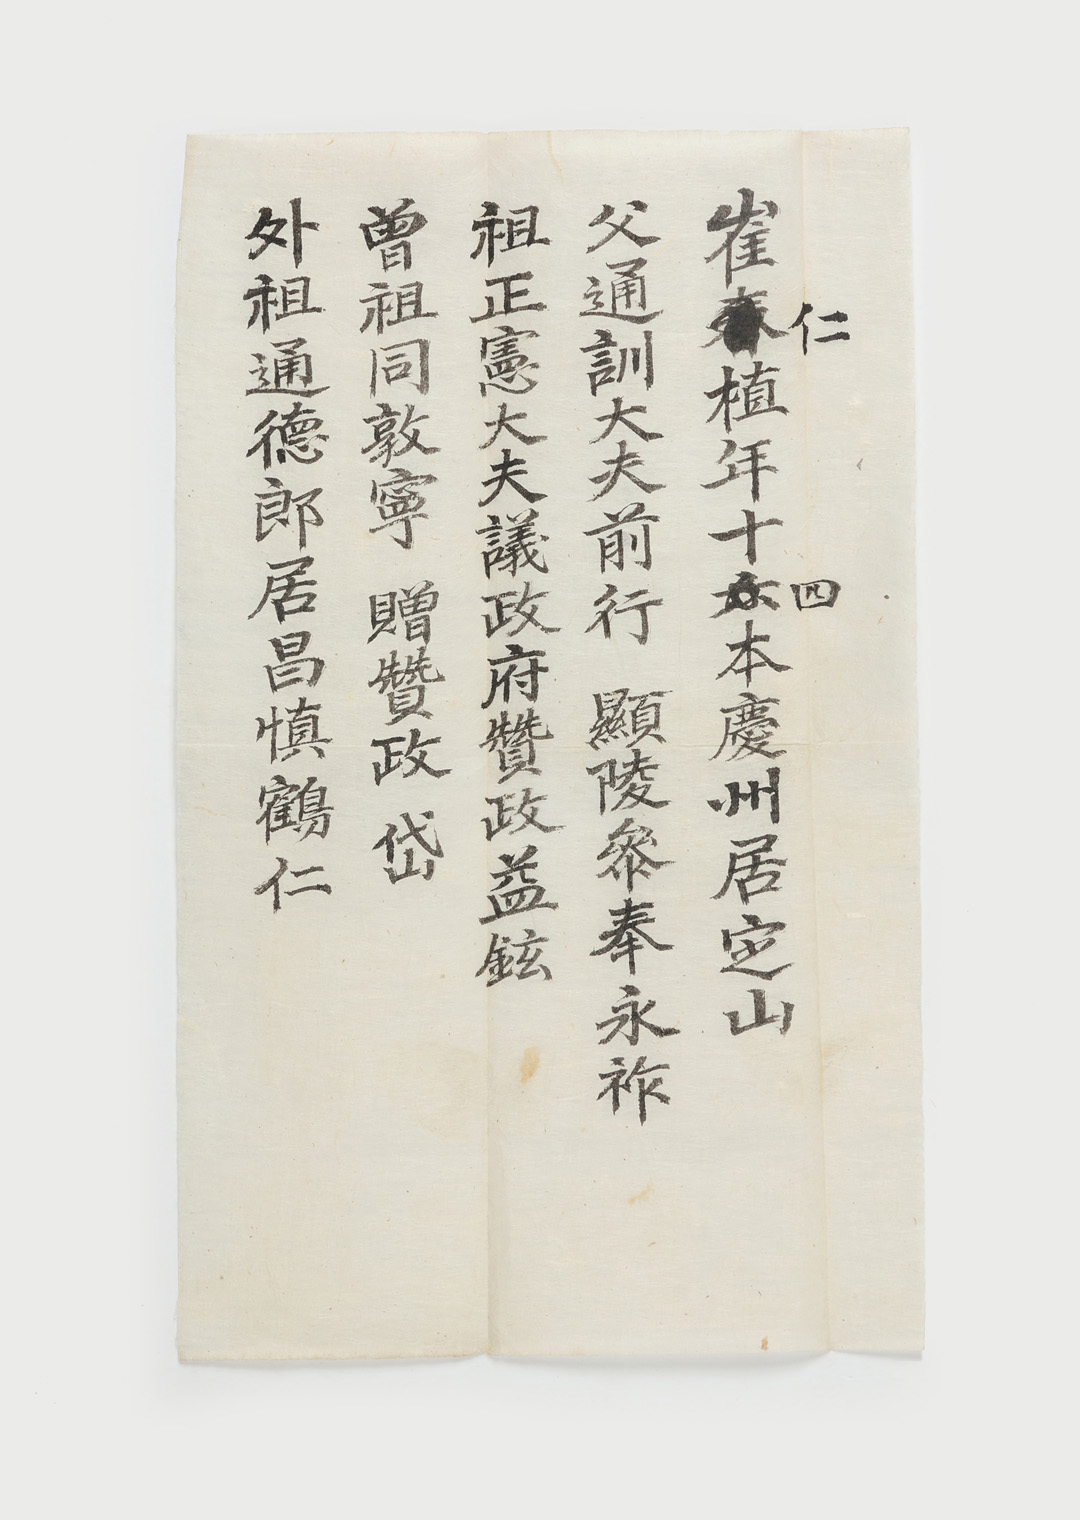 崔仁植年十四本慶州居定山
父通訓大夫前行 顯陵參奉永祚
祖正憲大夫議政府贊政益鉉
曾祖同敦寧 贈贊政 岱
外祖通德郎居昌慎鶴仁